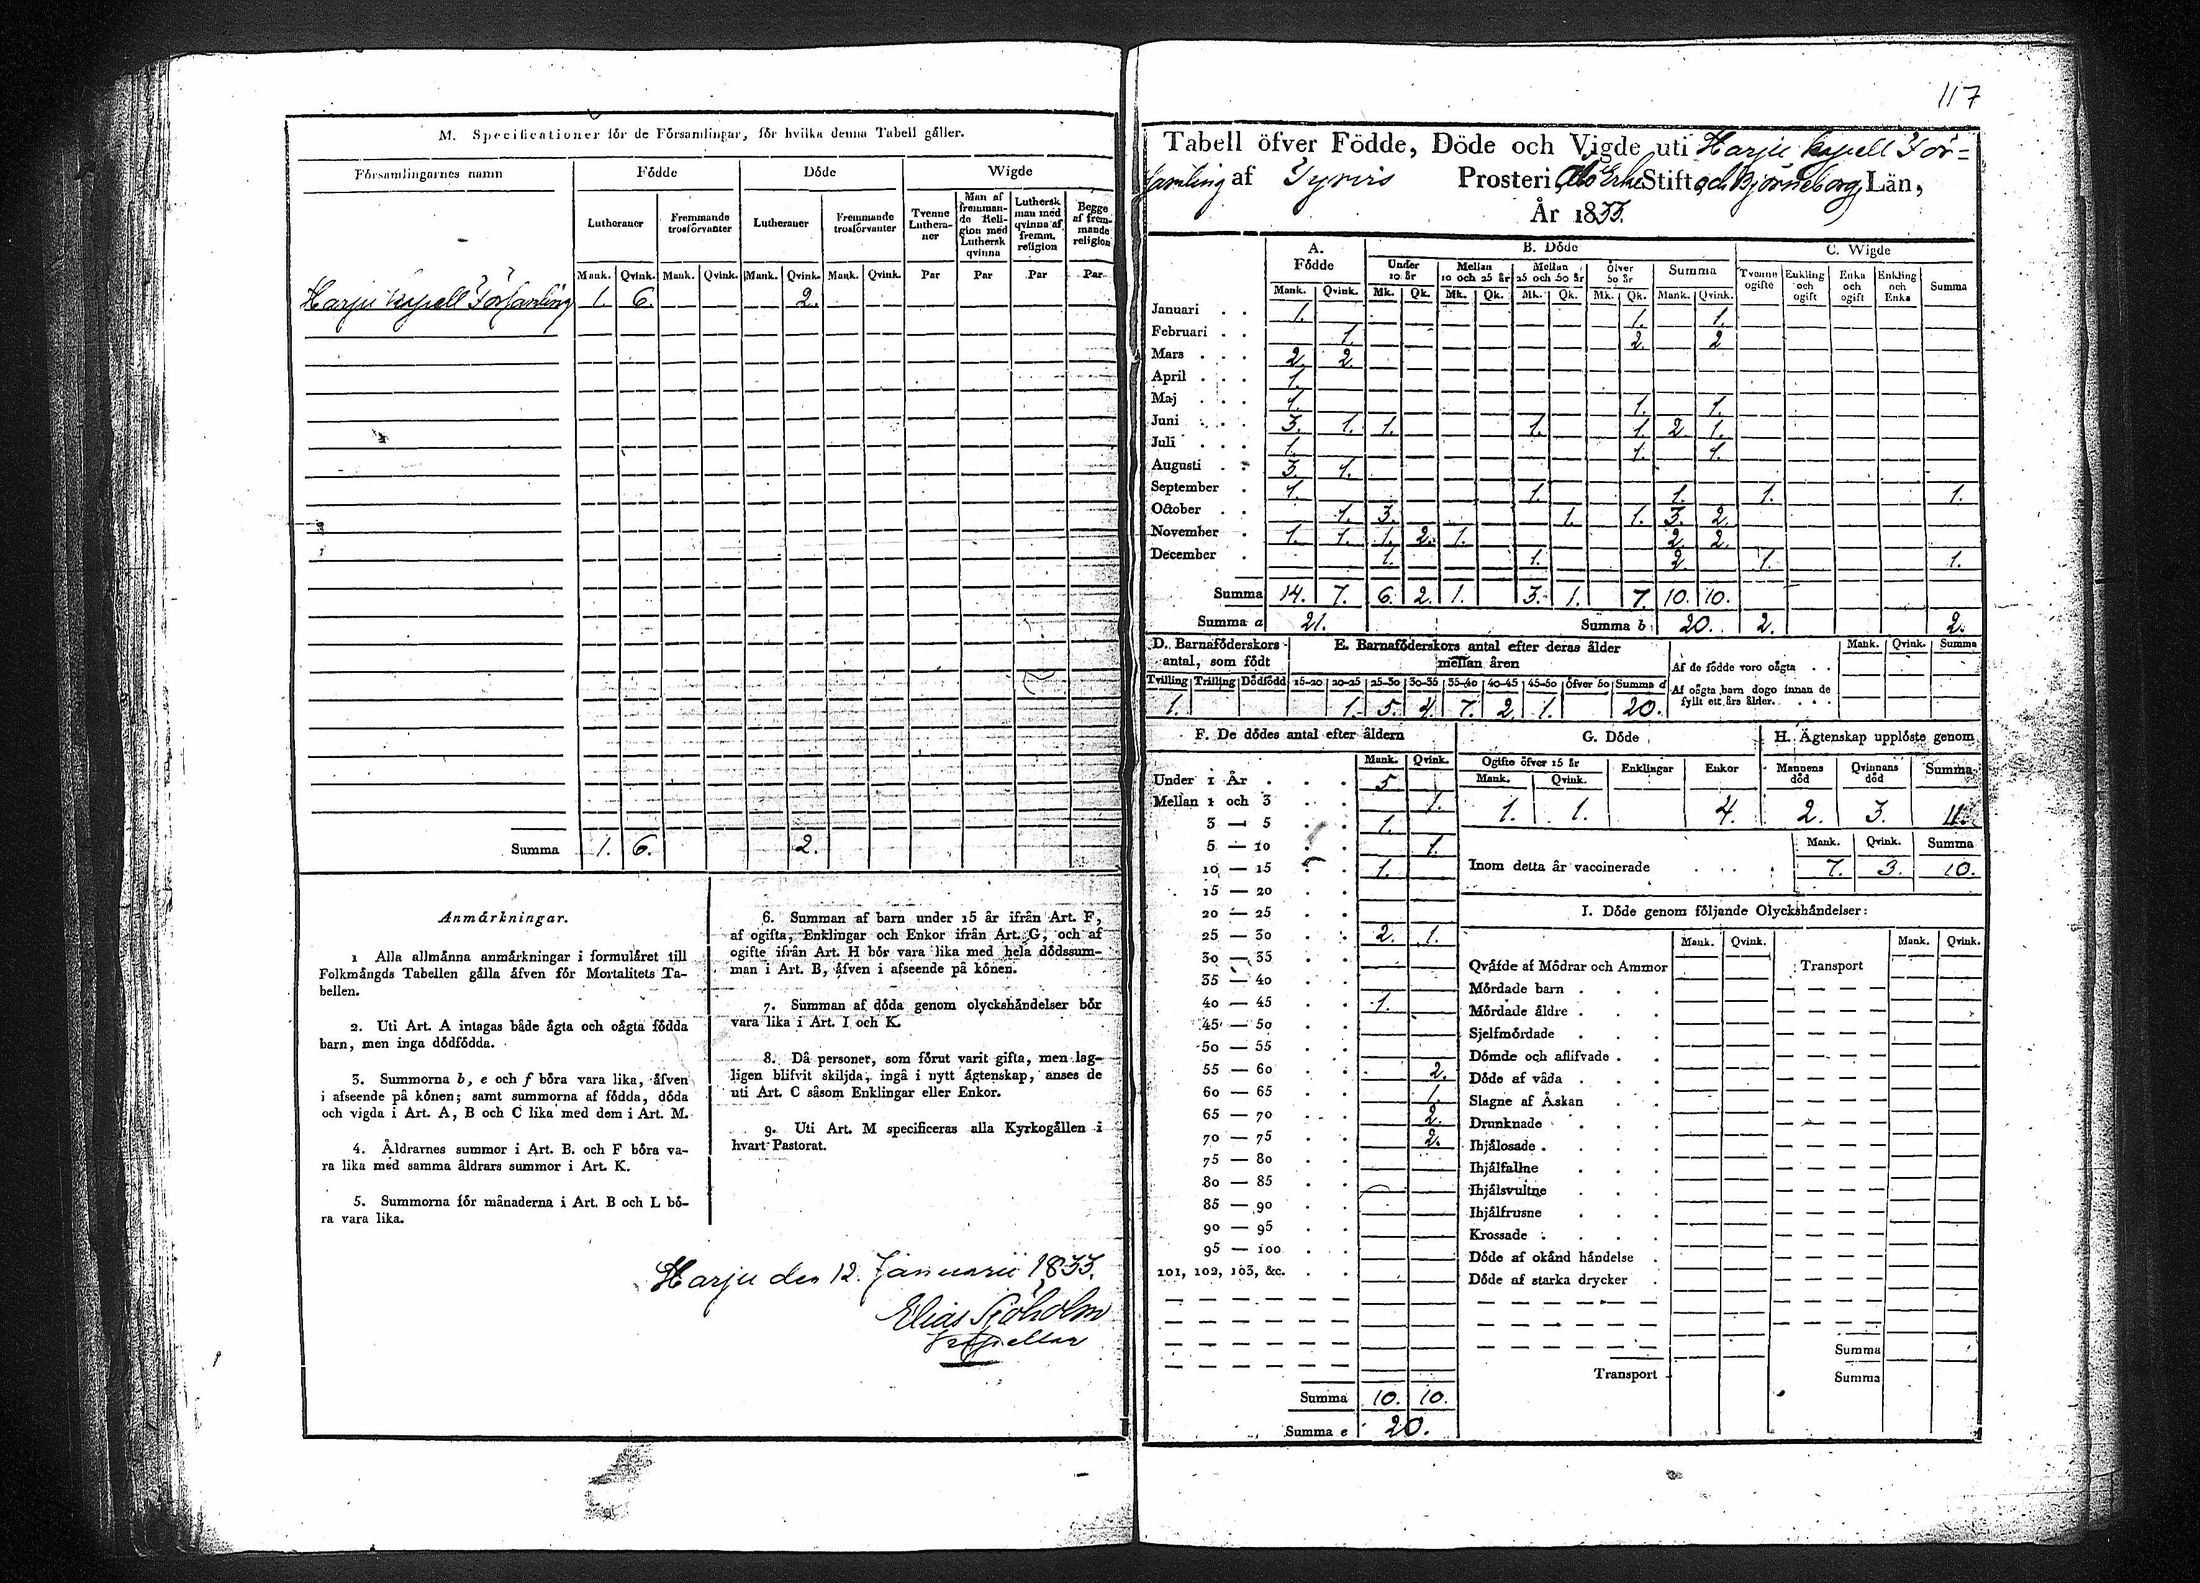 M. Specificationer fór de Fórsamlingar, fór hvilka denna Tabell gåller.
Fórsamlingarnes namn Fódde Dóde Wigde
Lutheraner Fremmande trosfórvanter Lutheraner Fremmande trosfórvanter Tvenne Lutheraner Man af fremmande Religion med Luthersk qvinna Luthersk man med qvinna af fremm. religion Begge af fremmande religion
Mank. Qvink. Mank. Qvink. Mank. Qvink. Mank. Qvink. Par Par Par Par
Harju kapell Församling 1. 6. 2.
Summa 1. 6. 2.
Anmårkningar.
1 Alla allmånna anmårkningar i formulåret till
Folkmångds Tabellen gålla åfven fór Mortalitets Ta-
bellen.
2. Uti Art. A intagas både ågta och oågta fódda
barn, men inga dódfódda.
3. Summorna b, e och f bóra vara lika, åfven
i afseende på kónen; samt summorna af fódda, dóda
och vigda i Art. A, B och C lika med dem i Art. M.
4. Åldrarnes summor i Art. B. och F bóra va-
ra lika med samma åldrars summor i Art. K.
5. Summorna fór månaderna i Art. B och L bó-
ra vara lika.
6. Summan af barn under 15 år ifrån Art. F,
af ogifta, Enklingar och Enkor ifrån Art. G, och af
ogifte ifrån Art. H bór vara lika med hela dódssum-
man i Art. B, åfven i afseende på kónen.
7. Summan af dóda genom olyckshåndelser bór
vara lika i Art. I och K.
8. Då personer, som fórut varit gifta, men lag-
ligen blifvit skiljda, ingå i nytt ågtenskap, anses de
uti Art. C såsom Enklingar eller Enkor.
9. Uti Art. M specificeras alla Kyrkogållen i
hvart Pastorat.
Harju den 12. Januarii 1833.
Elias
Kapellan
117
Tabell öfver Födde, Döde och Vigde uti Harju kapell För=
samling af Tyrvis Prosteri, Åbo Erke Stift och Björneborgs Län,
År 1833.
A. Fódde B. Dóde C. Wigde
Under 10 år Mellan 10 och 25 år Mellan 25 och 50 år Öfver 50 år Summa Tvenne ogifte Enkling och ogift Enka och ogift Enkling och Enka Summa
Mank. Qvink. Mk. Qk. Mk. Qk. Mk. Qk. Mk. Qk. Mank. Qvink.
Januari 1. 1. 1.
Februari 1. 2. 2
Mars 2. 2.
April 1.
Maj 1. 1. 1.
Juni 3. 1. 1. 1. 1. 2. 1.
Juli 1. 1. 1.
Augusti 3. 1.
September 1. 1. 1. 1. 1.
October 1. 3. 1. 1. 3. 2.
November 1. 1. 1. 2. 1. 2 2.
December 1. 1. 2 1. 1.
Summa 14. 7. 6. 2. 1. 3. 1. 7. 10. 10.
Summa a 21. Summa b 20. 2. 2.
D. Barnafóderskors antal, som fódt E. Barnafóderskors antal efter deras ålder mellan åren Mank. Qvink. Summa
Af de fódde voro oågta
Tvilling Trilling Dódfódd 15-20 20-25 25-30 30-35 35-40 40-45 45-50 Öfver 50 Summa d
Af oågta barn dogo innan de fyllt ett års ålder.
1. 1. 5. 4. 7. 2 1. 20.
F. De dódes antal efter åldern
Mank. Qvink.
Under 1 År 5
Mellan 1 och 3 1.
3 — 5 1.
5 — 10 1.
10 — 15 1.
15 — 20
20 — 25
25 — 30 2. 1.
30 — 35
35 — 40
40 — 45 1.
45 — 50
50 — 55
55 — 60 2.
60 — 65 1.
65 — 70 2.
70 — 75 2.
75 — 80
80 — 85
85 — 90
90 — 95
95 — 100
101, 102, 103, &c.
Summa 10. 10.
Summa e 20.
G. Dóde H. Ågtenskap upplóste genom
Ogifte ófver 15 år Enklingar Enkor Mannens dód Qvinnans dód Summa
Mank. Qvink.
1. 1. 4. 2. 3.
Mank. Qvink. Summa
Inom detta år vaccinerade 7. 3. 10.
I. Dóde genom fóljande Olyckshåndelser:
Mank. Qvink. Mank. Qvink.
Qvåfde af Módrar och Ammor Transport
Mórdade barn
Mórdade åldre
Sjelfmórdade
Dómde och aflifvade
Dóde af våda
Slagne af Åskan
Drunknade
Ihjålosade
Ihjålfallne
Ihjålsvultne
Ihjålfrusne
Krossade
Dóde af okånd håndelse
Dóde af starka drycker
Summa
Transport Summa